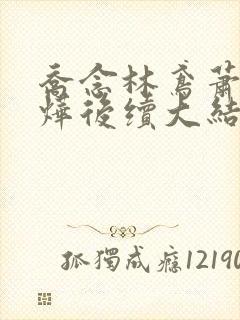 喬念林鳶蕭
燁後續大結
孤獨成癮12190